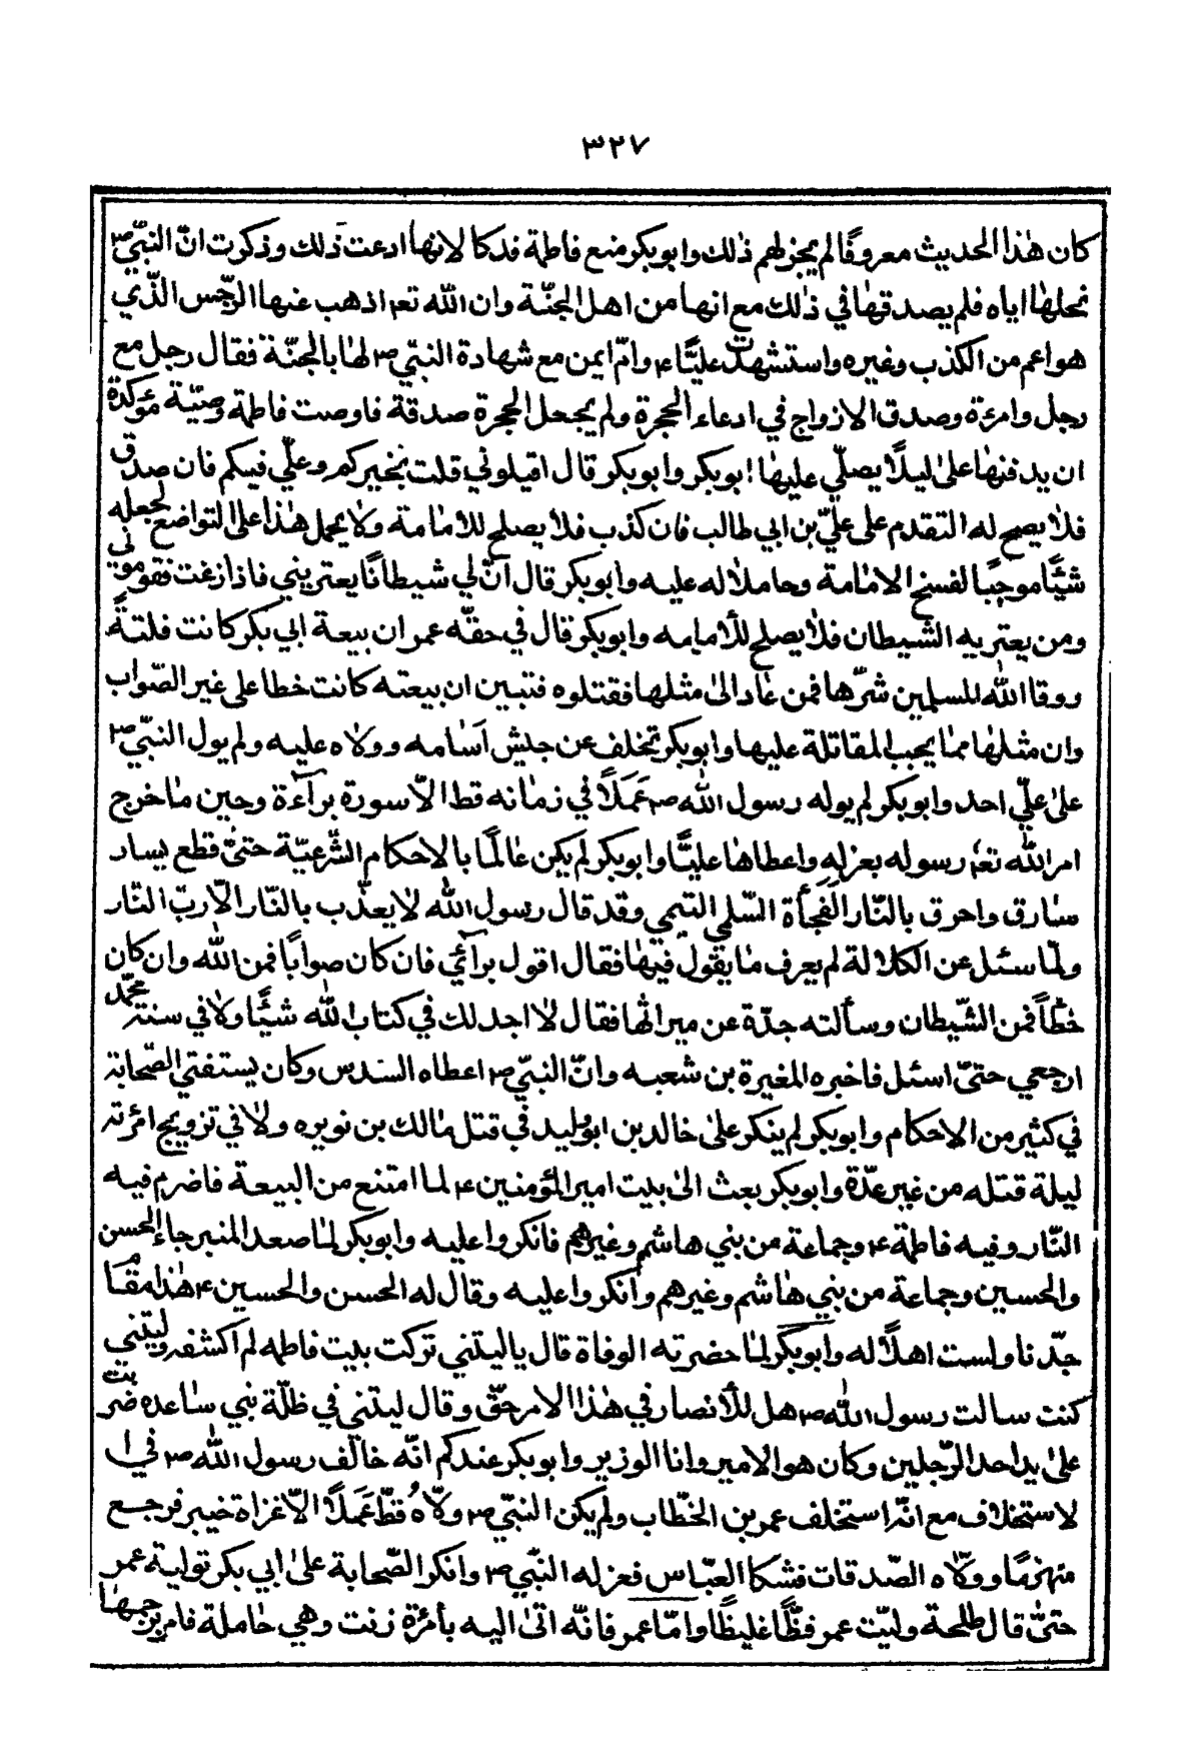 ٣٢٧
كان هذا الحديث معروفًا لم يجز لهم ذلك وابوبكر منع فاطمة فدكا لانها ادعت ذلك وذكرت انّ النبيّ ص
نحلها اياه فلم يصدقها في ذلك مع انها من اهل الجنّة وان الله تعم اذهب عنها الرجّس الذّي
هو اعم من الكذب وغيره واستشهدت عليًّا ع وامّ ايمن مع شهادة النبيّ ص لها بالجنّة فقال رجل مع
رجل وامرءة وصدق الازواج في ادعاء الحجرة ولم يجعل الحجرة صدقة فاوصت فاطمة وصيّة مؤكدة
ان يدفنها على ليلاً يصلّي عليها ابوبكر وابوبكر قال اقيلوني قلت بخيركم وعلّي فيكم فان صدق
فلا يصح له التقدم على عليّ بن ابي طالب فان كذب فلا يصلح للأمامة ولا يحمل هذا على التواضع لجعله
شيًّا موجبًا لفسخ الامامة وحاملا له عليه وابوبكر قال انّ لي شيطانًا يعتريني فاذا زغت فقوموني
ومن يعتريه الشّيطان فلا يصلح للأمامه وابوبكر قال في حقّه عمر ان بيعة ابي بكر كانت فلتةً
ووقا الله المسلمين شرّها فمن عاد الى مثلها فقتلوه فتبين ان بيعته كانت خطا على غير الصّواب
وان مثلها مما يجب المقاتلة عليها وابوبكر تخلف عن جيش اسامه وولاه عليه ولم يول النبيّ ص
على عليّ احد وابوبكر لم يوله رسول الله ص عَمَلاً في زمانه قط الاّ سورة برآءة وحين ما خرج
امر الله تعم رسوله بعزله واعطاها عليًّا وابوبكر لم يكن عالمًا بالاحكام الشّرعيّة حتىّ قطع يسار
سارق واحرق بالنّار الفَجَأة السّلمي التيمي وقد قال رسول الله لا يعذّب بالنّار الاّ ربّ النّار
ولمّا سئل عن الكلالة لم يعرف ما يقول فيها فقال اقول برآئي فان كان صوابًا فمن الله وان كان
خطًاً فمن الشّيطان وسألته جدّة عن ميراثها فقال لا اجد لك في كتاب الله شيًّا ولا في سنته محمّد
ارجعي حتىّ اسئل فاخبره المغيرة بن شعبه وانّ النبيّ ص اعطاه السّدس وكان يستفتي الصّحابة
في كثير من الاحكام وابوبكر لم ينكر على خالد بن ابوليد في قتل مالك بن نويره ولا في تزويج امرءته
ليلة قتله من غير عدّة وابوبكر بعث الى بيت امير المؤمنين ع لما امتنع من البيعة فاضرم فيه
النّار وفيه فاطمة ع وجماعة من بني هاشم وغيرهم فانكروا عليه وابوبكر لما صعد المنبر جاء الحسن
والحسين وجماعة من بني هاشم وغيرهم وأنكروا عليه وقال له الحسن والحسين ع هذا مقام
جدّنا ولست اهلاً له وابوبكر لما حضرته الوفاة قال ياليتني تركت بيت فاطمه لم اكشفه وليتني
كنت سالت رسول الله ص هل للأنصار في هذا الامر حقّ وقال ليتني في ظلّة بني ساعده ضربت
على يد احد الرّجلين وكان هو الامير وانا الوزير وابوبكر عندكم انّه خالف رسول الله ص في ا
لاستخلاف مع انّه استخلف عمر بن الخطّاب ولم يكن النبيّ ص ولاّهُ قطّ عَمَلاً الاّ غزاة خيبر فرجع
منهزمًا وولاّه الصّدقات فشكا العبّاس فعزله النبّي ص وانكر الصّحابة على ابي بكر تولية عمر
حتىّ قال طلحة وليّت عمر فظًّا غليظًا وامّا عمر فانّه اتى اليه بأمرءة زنت وهي حاملة فامر برجمها